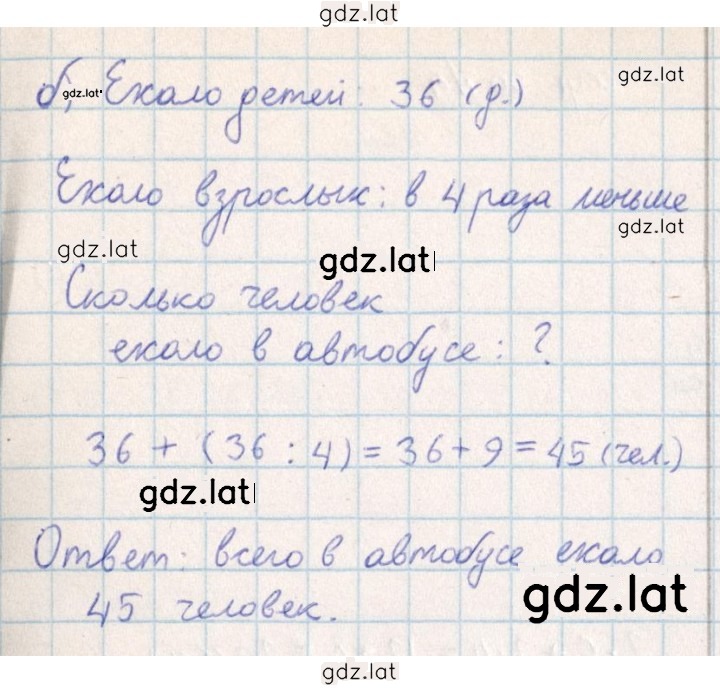 gdz.lat
б, gdz.lat Ехало детей: 36 (д.) gdz.lat
Ехало взрослых: в 4 раза меньше
gdz.lat gdz.lat gdz.lat
Сколько человек
ехало в автобусе: ?
36 + (36 : 4) = 36 + 9 = 45 (чел.)
gdz.lat
Ответ: всего в автобусе ехало
45 человек. gdz.lat
gdz.lat